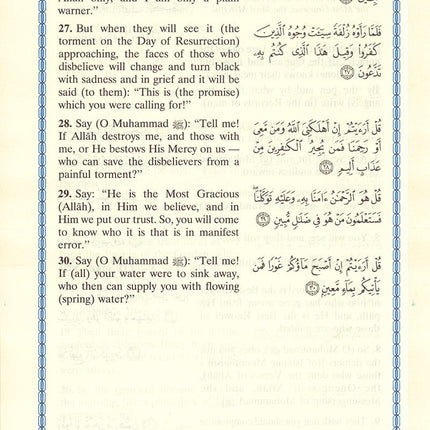 warner.”
27. But when they will see it (the
torment on the Day of Resurrection)
approaching, the faces of those who
disbelieve will change and turn black
with sadness and in grief and it will be
said (to them): “This is (the promise)
which you were calling for!”
فَلَمَّا رَأَوْهُ زُلْفَةً سِيٓـَٔتْ وُجُوهُ ٱلَّذِينَ
كَفَرُوا۟ وَقِيلَ هَـٰذَا ٱلَّذِى كُنتُم بِهِۦ
تَدَّعُونَ ٢٧
28. Say (O Muhammad ﷺ): “Tell me!
If Allâh destroys me, and those with
me, or He bestows His Mercy on us —
who can save the disbelievers from a
painful torment?”
قُلْ أَرَءَيْتُمْ إِنْ أَهْلَكَنِىَ ٱللَّهُ وَمَن مَّعِىَ
أَوْ رَحِمَنَا فَمَن يُجِيرُ ٱلْكَـٰفِرِينَ مِنْ
عَذَابٍ أَلِيمٍ ٢٨
29. Say: “He is the Most Gracious
(Allâh), in Him we believe, and in
Him we put our trust. So, you will come
to know who it is that is in manifest
error.”
قُلْ هُوَ ٱلرَّحْمَـٰنُ ءَامَنَّا بِهِۦ وَعَلَيْهِ تَوَكَّلْنَا
فَسَتَعْلَمُونَ مَنْ هُوَ فِى ضَلَـٰلٍ مُّبِينٍ ٢٩
30. Say (O Muhammad ﷺ): “Tell me!
If (all) your water were to sink away,
who then can supply you with flowing
(spring) water?”
قُلْ أَرَءَيْتُمْ إِنْ أَصْبَحَ مَآؤُكُمْ غَوْرًا فَمَن
يَأْتِيكُم بِمَآءٍ مَّعِينٍۭ ٣٠